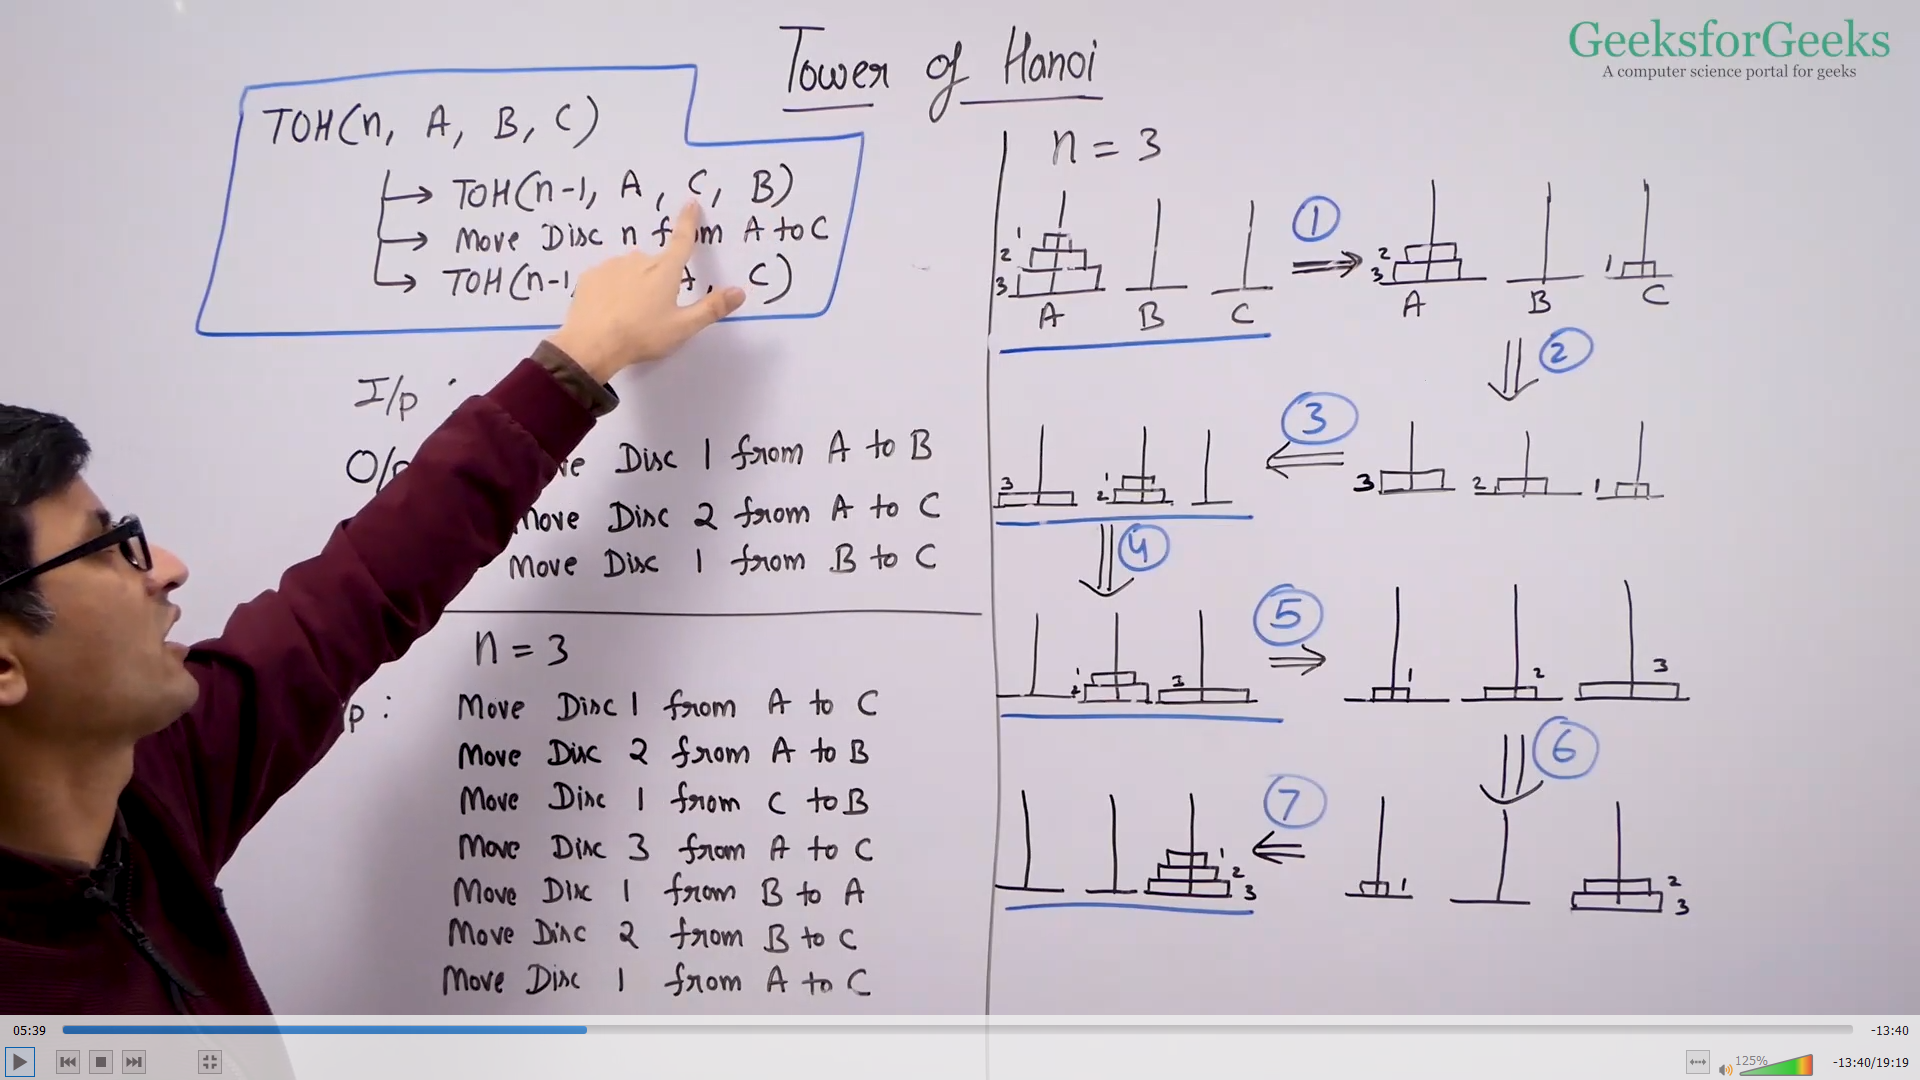 Tower of Hanoi
GeeksforGeeks
A computer science portal for geeks
TOH(n, A, B, C)
TOH(n-1, A, C, B)
Move Disc n from A to C
TOH(n-1, A, C)
I/p
O/p
Disc 1 from A to B
Move Disc 2 from A to C
Move Disc 1 from B to C
n = 3
p :
Move Disc 1 from A to C
Move Disc 2 from A to B
Move Disc 1 from C to B
Move Disc 3 from A to C
Move Disc 1 from B to A
Move Disc 2 from B to C
Move Disc 1 from A to C
n = 3
1
2
3
A B C
1
2
3
1
A B C
2
3
3 2 1
3
1
2
4
1
2
3
5
1 2 3
6
1
2
3
7
1
2
3
05:39
-13:40
125%
-13:40/19:19